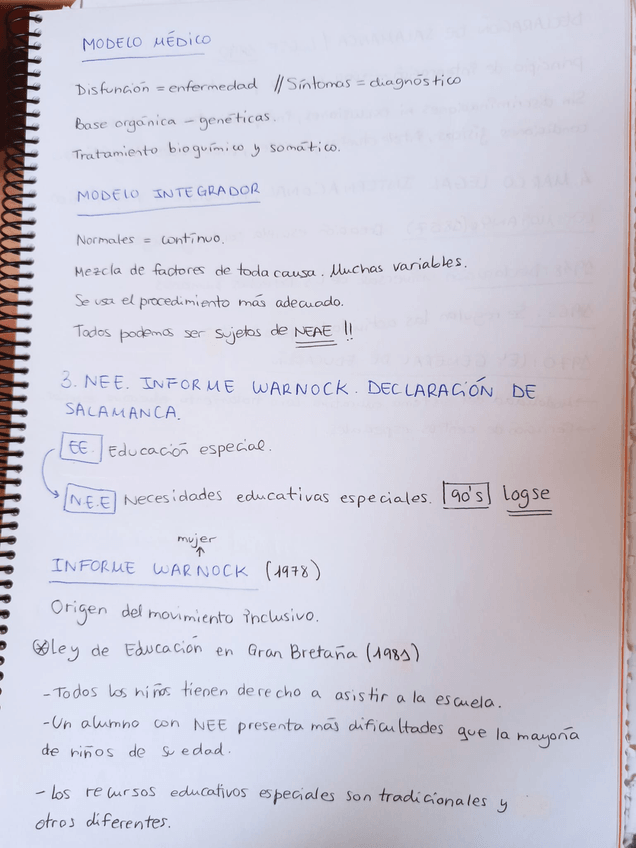 MODELO MÉDICO
Disfunción = enfermedad // Síntomas = diagnóstico
Base orgánica - genéticas.
Tratamiento bioquímico y somático.
MODELO INTEGRADOR
Normales = contínuo.
Mezcla de factores de toda causa. Muchas variables.
Se usa el procedimiento más adecuado.
Todos podemos ser sujetos de NEAE !!
3. NEE. INFORME WARNOCK. DECLARACIÓN DE
SALAMANCA.
EE. Educación especial.
N.E.E Necesidades educativas especiales. 90's Logse
mujer
INFORME WARNOCK (1978)
Origen del movimiento inclusivo.
Ley de Educación en Gran Bretaña (1981)
- Todos los niños tienen derecho a asistir a la escuela.
- Un alumno con NEE presenta más dificultades que la mayoría
de niños de su edad.
- Los recursos educativos especiales son tradicionales y
otros diferentes.